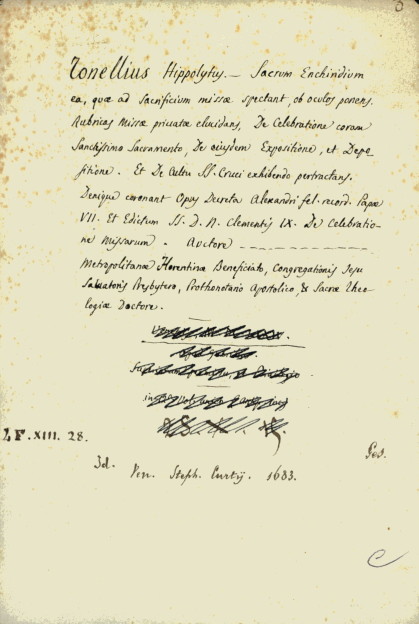 Tonellius Hippolytus. — Sacrum Enchiridium
ea, quæ ad Sacrificium missæ spectant, ob oculos ponens.
Rubricas Missæ privatæ elucidans, De Celebratione coram
Sanctissimo Sacramento, De eiusdem Expositione, et Depo
sitione. Et De Cultu SS. Cruci exhibendo pertractans.
Denique coronant Opus Decreta Alexandri fel. record. Papæ
VII. Et Edictum SS. D. N. Clementis IX. De Celebratio-
ne Missarum. Auctore
Metropolitanæ Florentinæ Beneficiato, Congregationis Jesu
Salvatoris Presbytero, Prothonotario Apostolico, & Sacræ Theo-
logiæ Doctore.
Z F. XIII. 28.
Ven. Steph. Curtij. 1683.